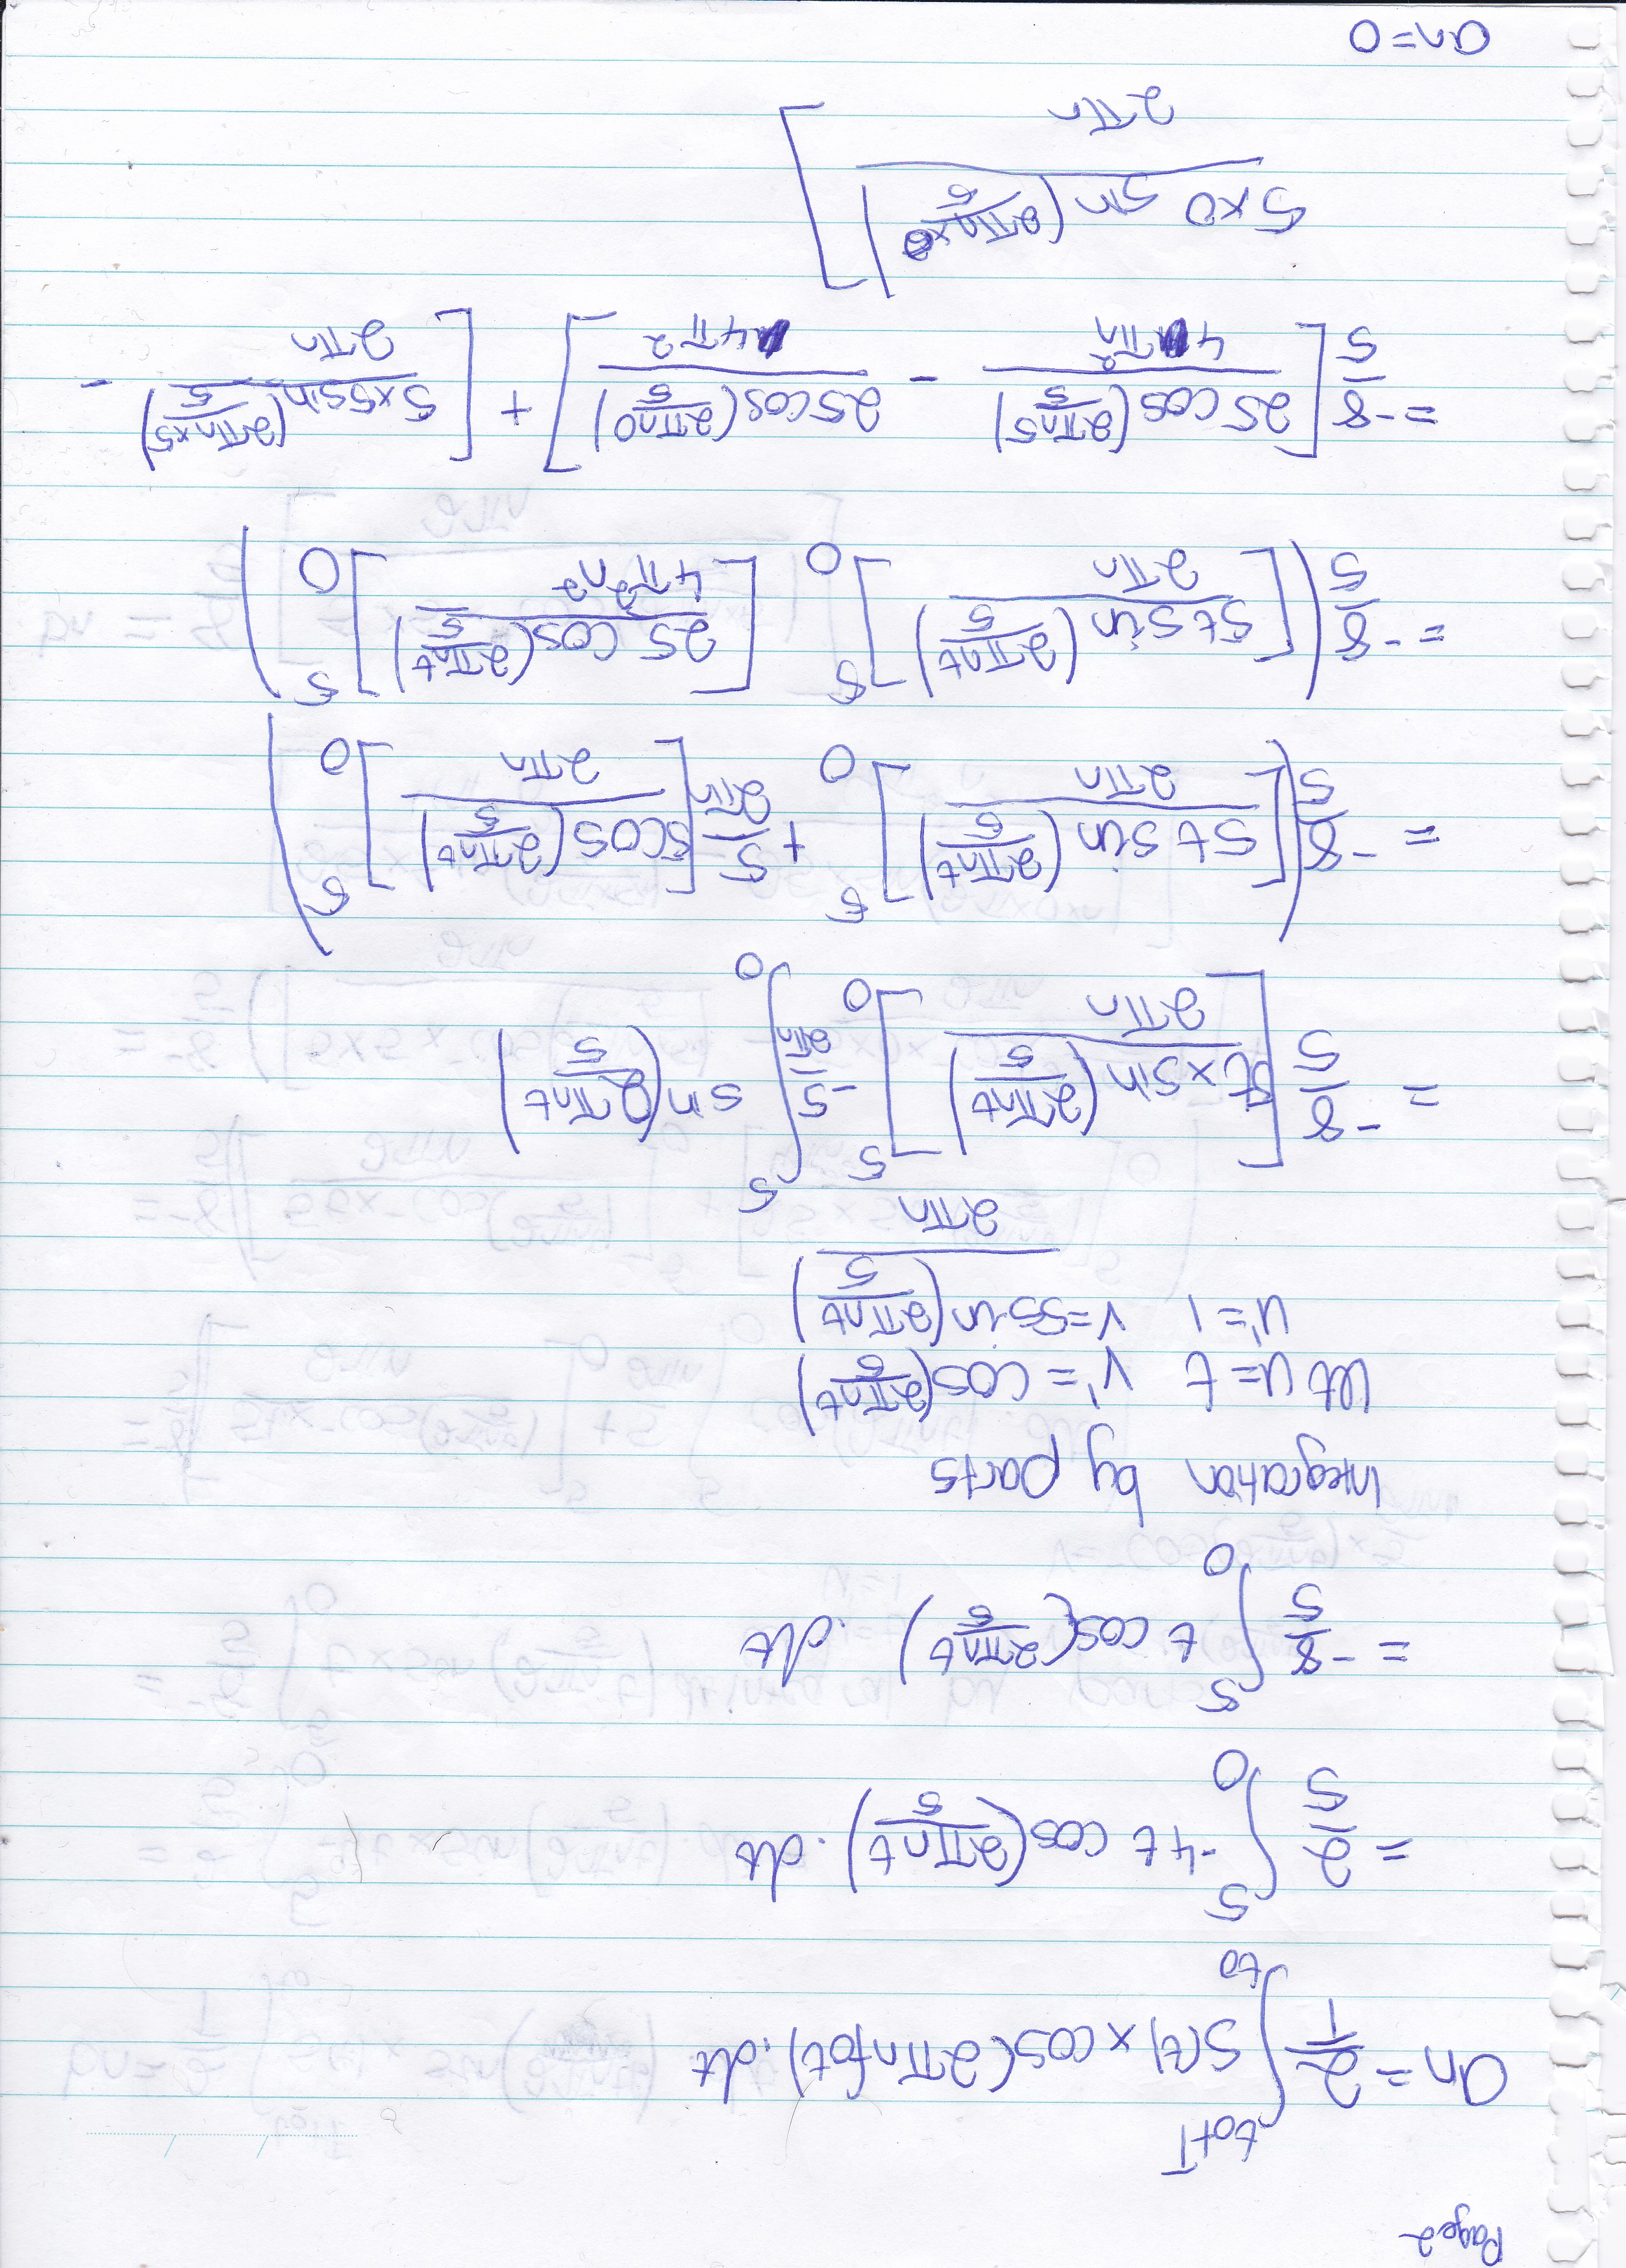 Page 2
an = 2/T ∫_{t0}^{t0+T} S(t) × cos(2πnf0t) . dt
= 2/5 ∫_0^5 -4t cos(2πnt/5) . dt
= -8/5 ∫_0^5 t cos(2πnt/5) . dt
Integration by parts
let u = t v' = cos(2πnt/5)
u' = 1 v = 5sin(2πnt/5) / 2πn
= -8/5 [5t × sin(2πnt/5) / 2πn]_0^5 - 5/2πn ∫_0^5 sin(2πnt/5)
= -8/5 ([5t sin(2πnt/5) / 2πn]_0^5 + 5/2πn [5cos(2πnt/5) / 2πn]_0^5)
= -8/5 ([5t sin(2πnt/5) / 2πn]_0^5 [25 cos(2πnt/5) / 4π²n²]_0^5)
= -8/5 [25cos(2πn5/5) / 4πn² - 25cos(2πn0/5) / 4π²] + [5×5sin(2πn×5/5) / 2πn -
5×0 sin(2πn×0/5) / 2πn]
an = 0